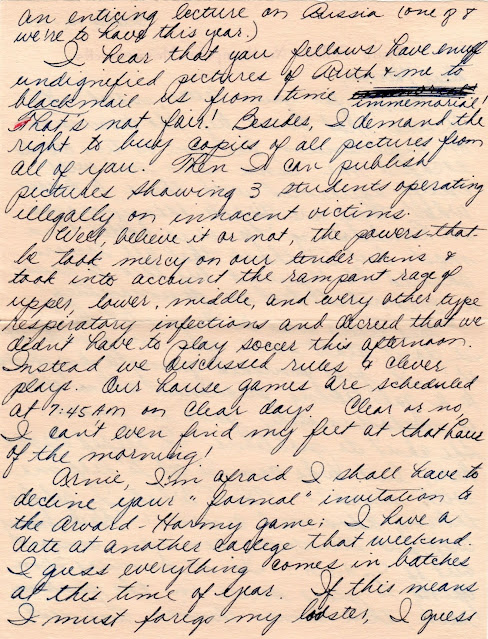 an enticing lecture on Russia (one of 8
we're to have this year.)
I hear that you fellows have enuff
undignified pictures of Ruth & me to
blackmail us from time immemorial!
That's not fair! Besides, I demand the
right to buy copies of all pictures from
all of you. Then I can publish
pictures showing 3 students operating
illegally on innocent victims.
Well, believe it or not, the powers-that-
be took mercy on our tender skins &
took into account the rampant rage of
upper, lower, middle, and every other type
respiratory infections and decreed that we
didn't have to play soccer this afternoon.
Instead we discussed rules & clever
plays. Our house games are scheduled
at 7:45 AM on clear days. Clear or no,
I can't even find my feet at that hour
of the morning!
Arnie, I'm afraid I shall have to
decline your "formal" invitation to
the Arward-Hormy game; I have a
date at another college that weekend.
I guess everything comes in batches
at this time of year. If this means
I must forego my lobster, I guess